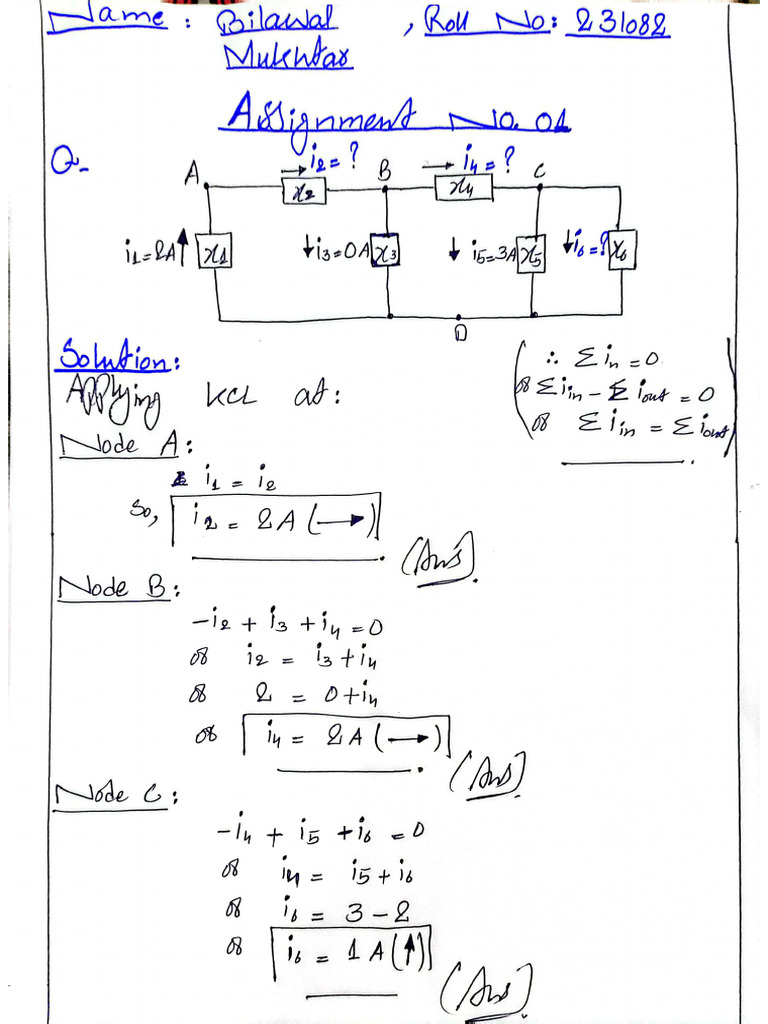 Name : Bilawal , Roll No: 231082
Mukhtar
Assignment No. 01
Q-
i2=? B i4=? C
A x2 x4
i1=2A x1 i3=0A x3 i5=3A x5 i6=? x6
D
Solution:
Applying KCL at:
∴ Σin=0
or Σiin - Σiout = 0
or Σiin = Σiout
Node A:
i1 = i2
So, i2 = 2A (→)
(Ans).
Node B:
-i2 + i3 + i4 = 0
or i2 = i3 + i4
or 2 = 0+i4
or i4 = 2A (→)
(Ans)
Node C:
-i4 + i5 + i6 = 0
or i4 = i5 + i6
or i6 = 3 - 2
or i6 = 1A(↑)
(Ans)